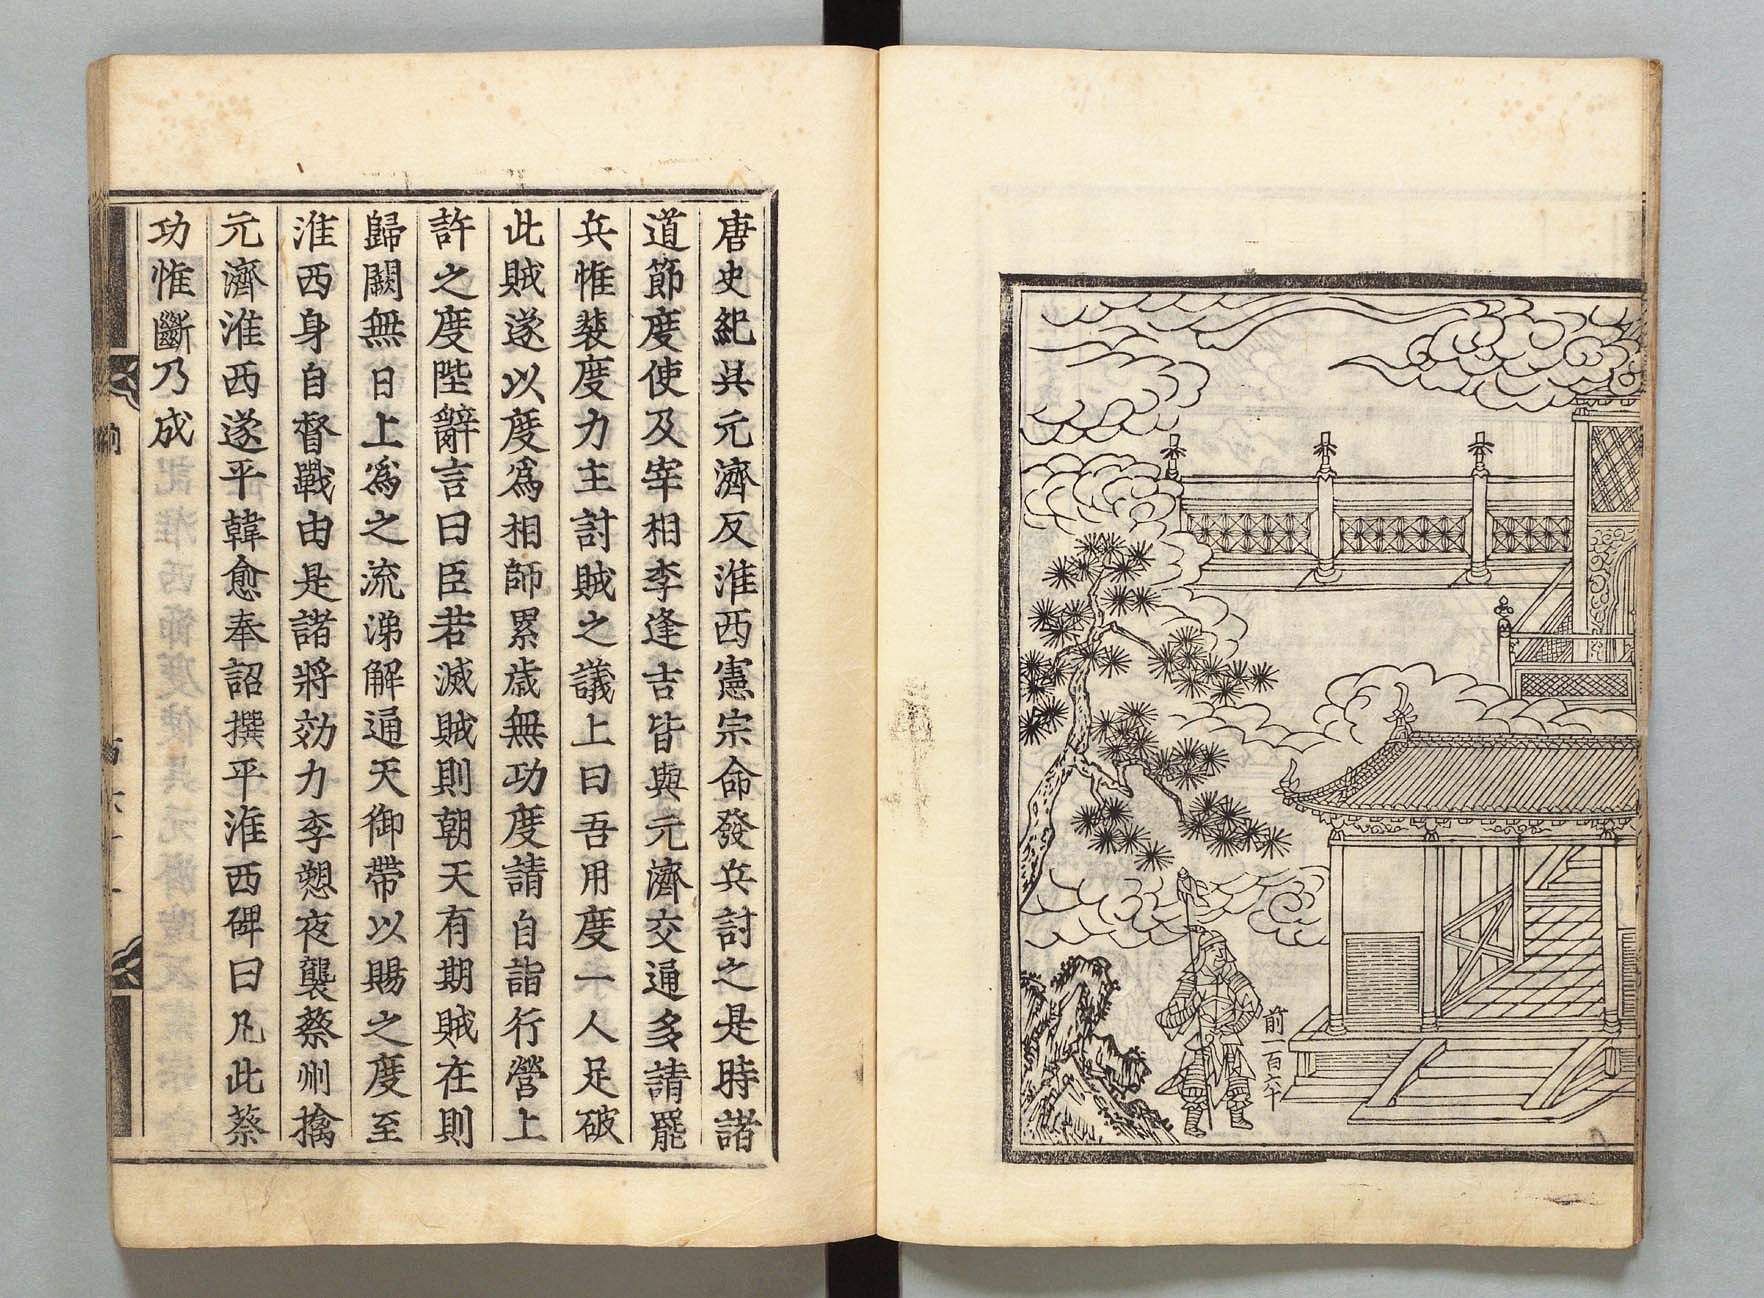 前一百六十
唐史紀吳元濟反淮西憲宗命發兵討之是時諸
道節度使及宰相李逢吉皆與元濟交通多請罷
兵惟裴度力主討賊之議上曰吾用度一人足破
此賊遂以度爲相師累歲無功度請自詣行營上
許之度陛辭言曰臣若滅賊則朝天有期賊在則
歸闕無日上爲之流涕解通天御帶以賜之度至
淮西身自督戰由是諸將効力李愬夜襲蔡州擒
元濟淮西遂平韓愈奉詔撰平淮西碑曰凡此蔡
功惟斷乃成